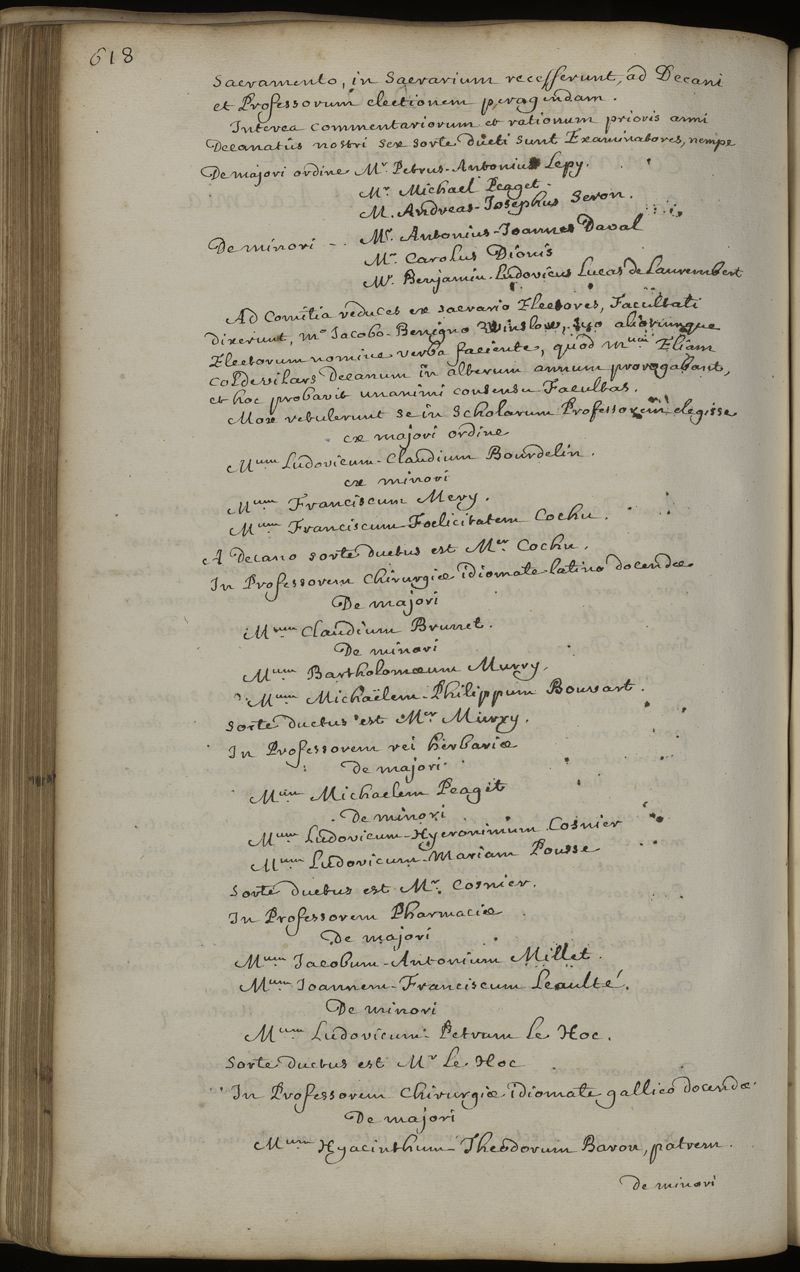 618
Sacramento, in Sacrarium recesserunt, ad Decani
et Professorum electionem peragendam.
Interea Commentariorum et rationum prioris anni
Decanatûs nostri sex sorte ducti sunt Examinatores, nempe
De majori ordine Mr. Petrus-Antonius Lepy.
Mr. Michael Peaget.
M. Andreas-Josephus Seron.
De minori - - Mr. Antonius-Joannes Daval
Mr. Carolus Dionis
Mr. Benjamin-Ludovicus Lucas de Laurembert
Ad Comitia reduces ex sacrario Electores, Facultati
dixerunt, Mro Jacobo-Benigno Winslow, suo aliorumque
Electorum nomine verba faciente, quod Mum Eliam
Coldevilars Decanum in alterum annum prorogabant,
et hoc probavit unanimi consensu Facultas.
Mox retulerunt se in Scholarum Professorem elegisse
ex majori ordine
Mum Ludovicum-Claudium Bourdelin.
ex minori
Mum Franciscum Mery.
Mum Franciscum-Foelicitatem Cochu.
A Decano sorte ductus est Mer Cochu.
In Professorem Chirurgiæ idiomate latino docendæ
De majori
Mum Claudium Brunet.
De minori
Mum Bartholomæum Murry.
Mum Michaëlem-Philippum Bouvart.
Sorte ductus est Mer Murry.
In Professorem rei herbariæ
De majori
Mum Michaelem Peaget
De minori
Mum Ludovicum-Hyeronimum Cosnier
Mum Ludovicum-Mariam Pousse
Sorte ductus est Mr. Cosnier.
In Professorem Pharmaciæ
De majori
Mum Jacobum-Antonium Millet.
Mum Joannem-Franciscum Leaulté.
De minori
Mum Ludovicum-Petrum Le Hoc.
Sorte ductus est Mr Le Hoc
In Professorem Chirurgiæ idiomate gallico docendæ.
De majori
Mum Hyacinthum-Theodorum Baron, patrem.
De minori